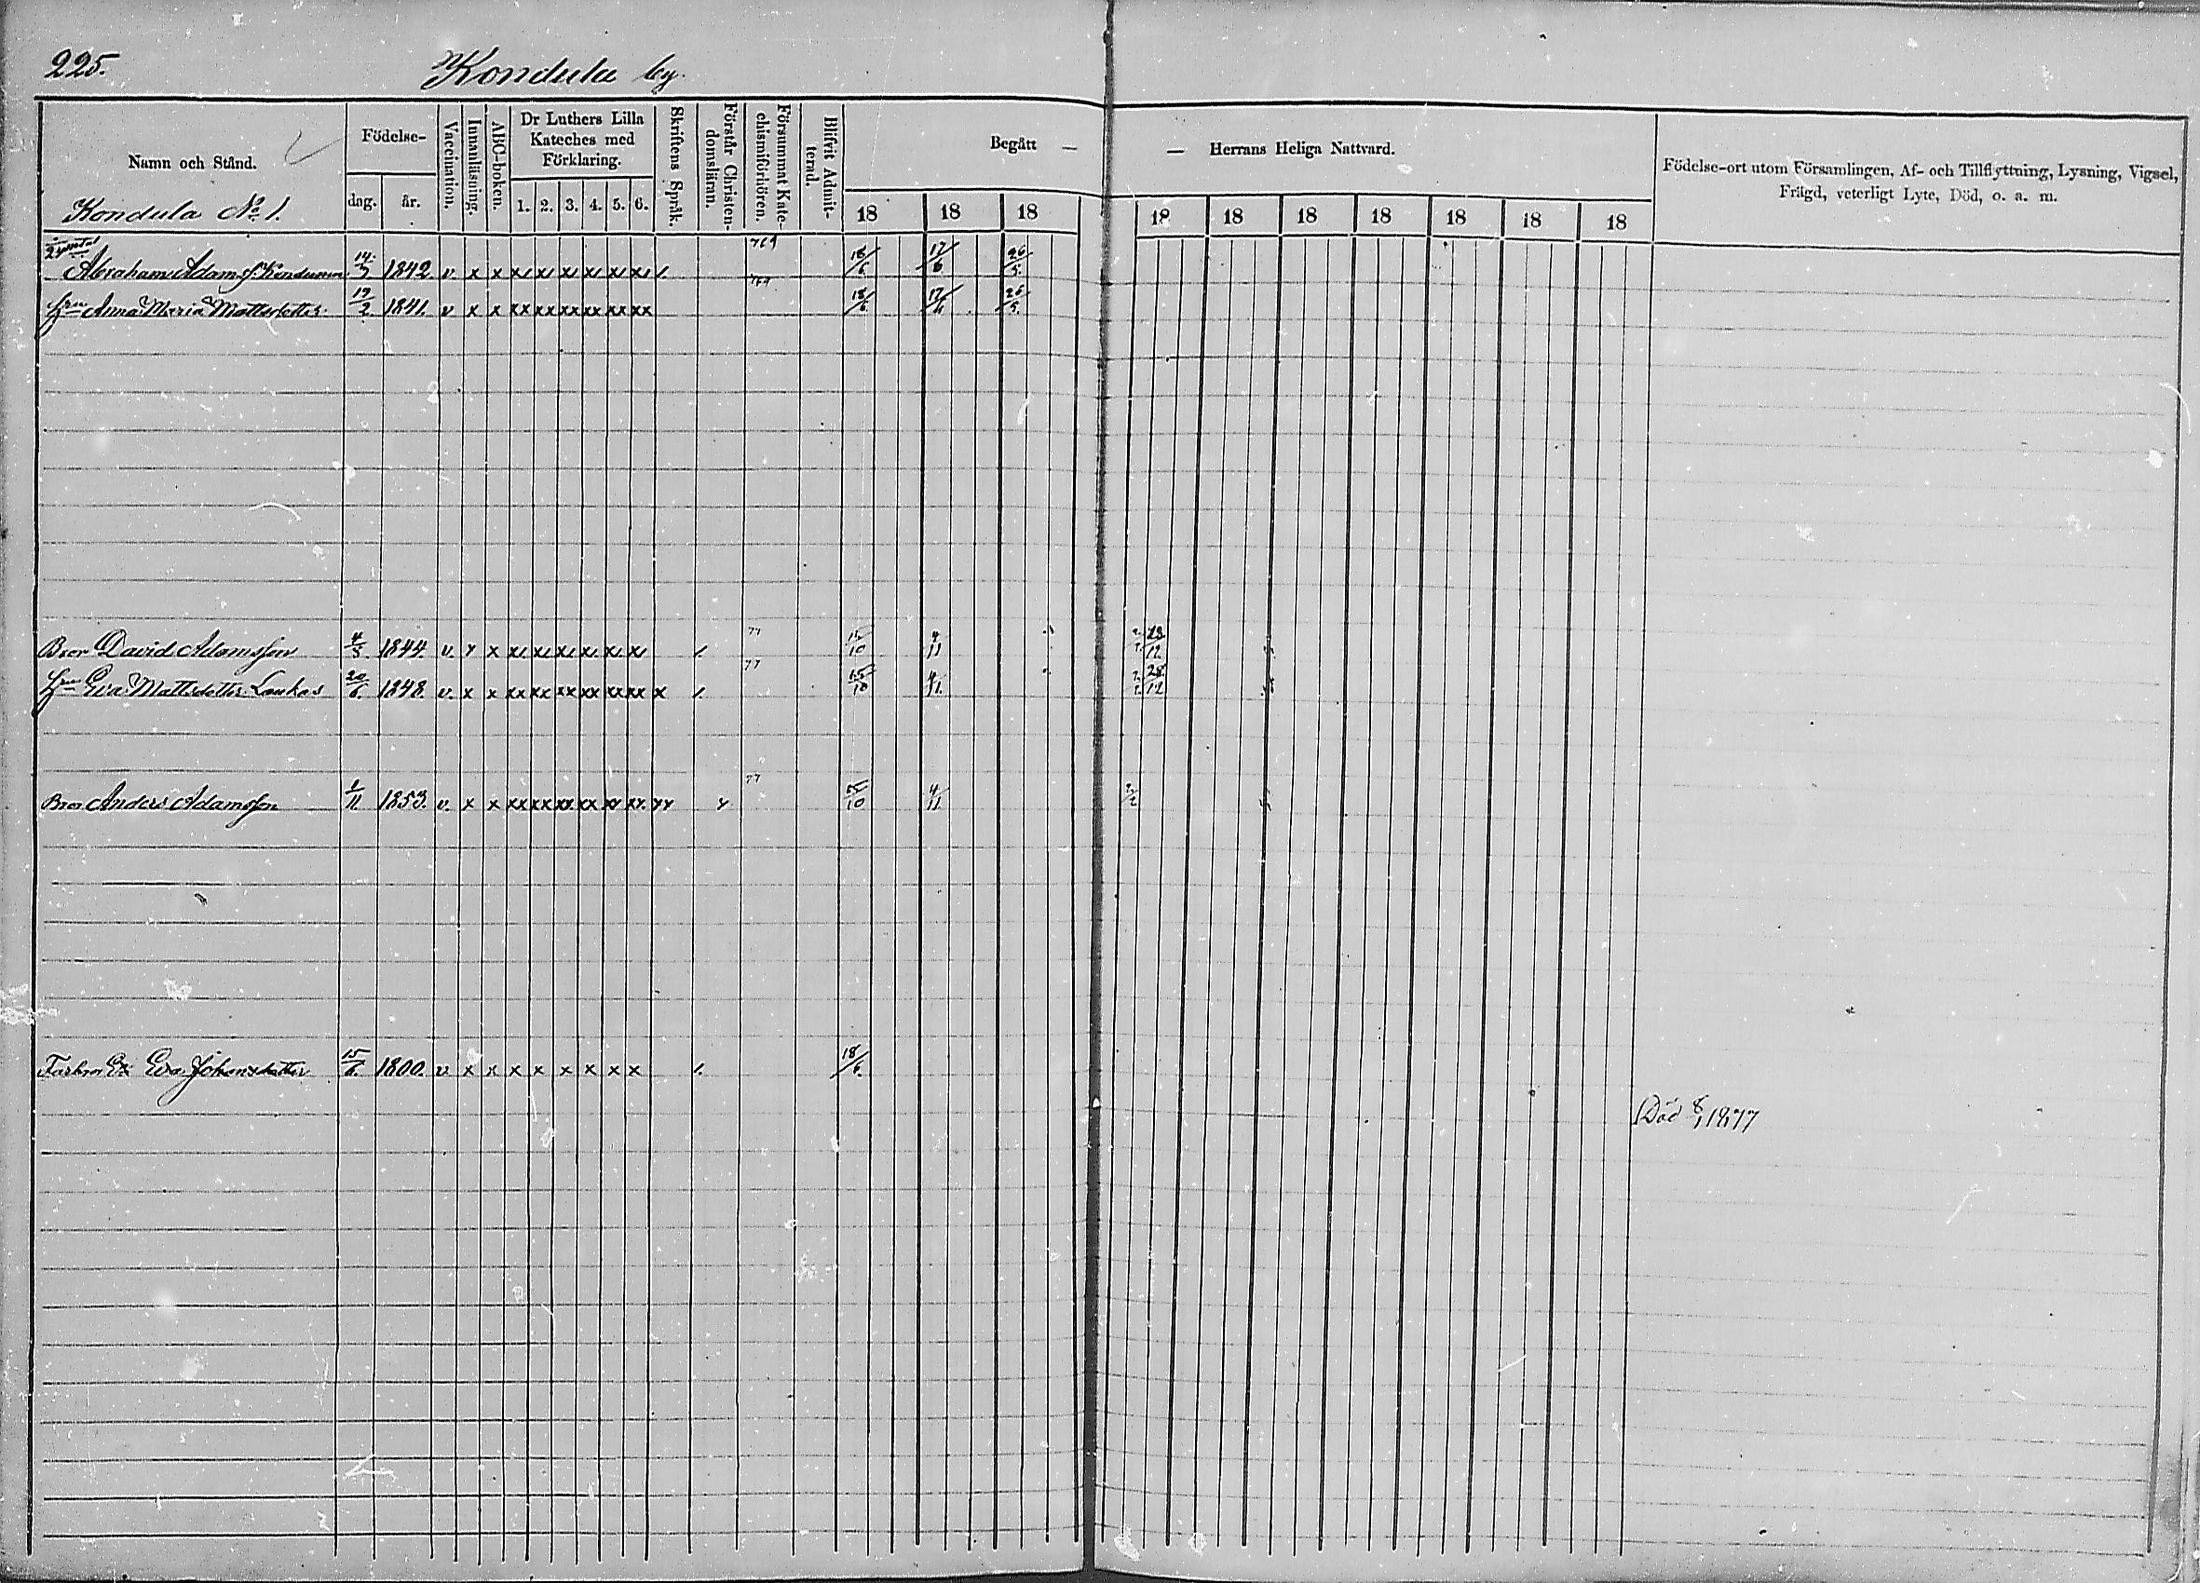 225. Kondula by.
Namn och Stånd.
Födelse-
dag. år.
Vaccination.
Innanläsning.
ABC-boken.
Dr Luthers Lilla
Kateches med
Förklaring.
1. 2. 3. 4. 5. 6.
Skriftens Språk.
Förstår Christen-
domsläran.
Försummat Kate-
chismiförhören.
Blifvit Admit-
terad.
Begått — — Herrans Heliga Nattvard.
18 18 18 18 18 18 18 18 18 18
Födelse-ort utom Församlingen, Af- och Tillflyttning, Lysning, Vigsel,
Frägd, veterligt Lyte, Död, o. a. m.
Kondula No. 1.
Abraham Adamss. 14/ 1842. v. x x x x x x x x 18/6. 17/6 26/5.
Hru Anna Maria Mattsdotter 19/2 1841. v x x xx xx xx xx xx xx 18/6. 17/6 26/5.
Bror David Adamsson 4/5. 1844. v. x x x x x x x x 77 15/10 4/11
Hru Eva Mattsdotter Laukas 20/6. 1848. v. x x xx xx xx xx xx xx x 77 15/10 4/11.
Bror Anders Adamsson /11. 1853. v. x x xx xx xx xx xx xx xx x 77 15/10 4/11
Eva Johansdotter 15/6. 1800. v x x x x x x x x 18/6.
Död 8/1 1877